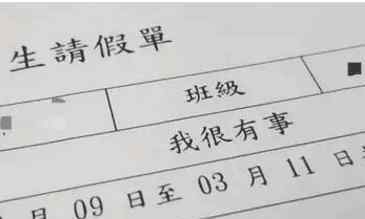 生請假單
班級
我很有事
月 09 日至 03 月 11 日